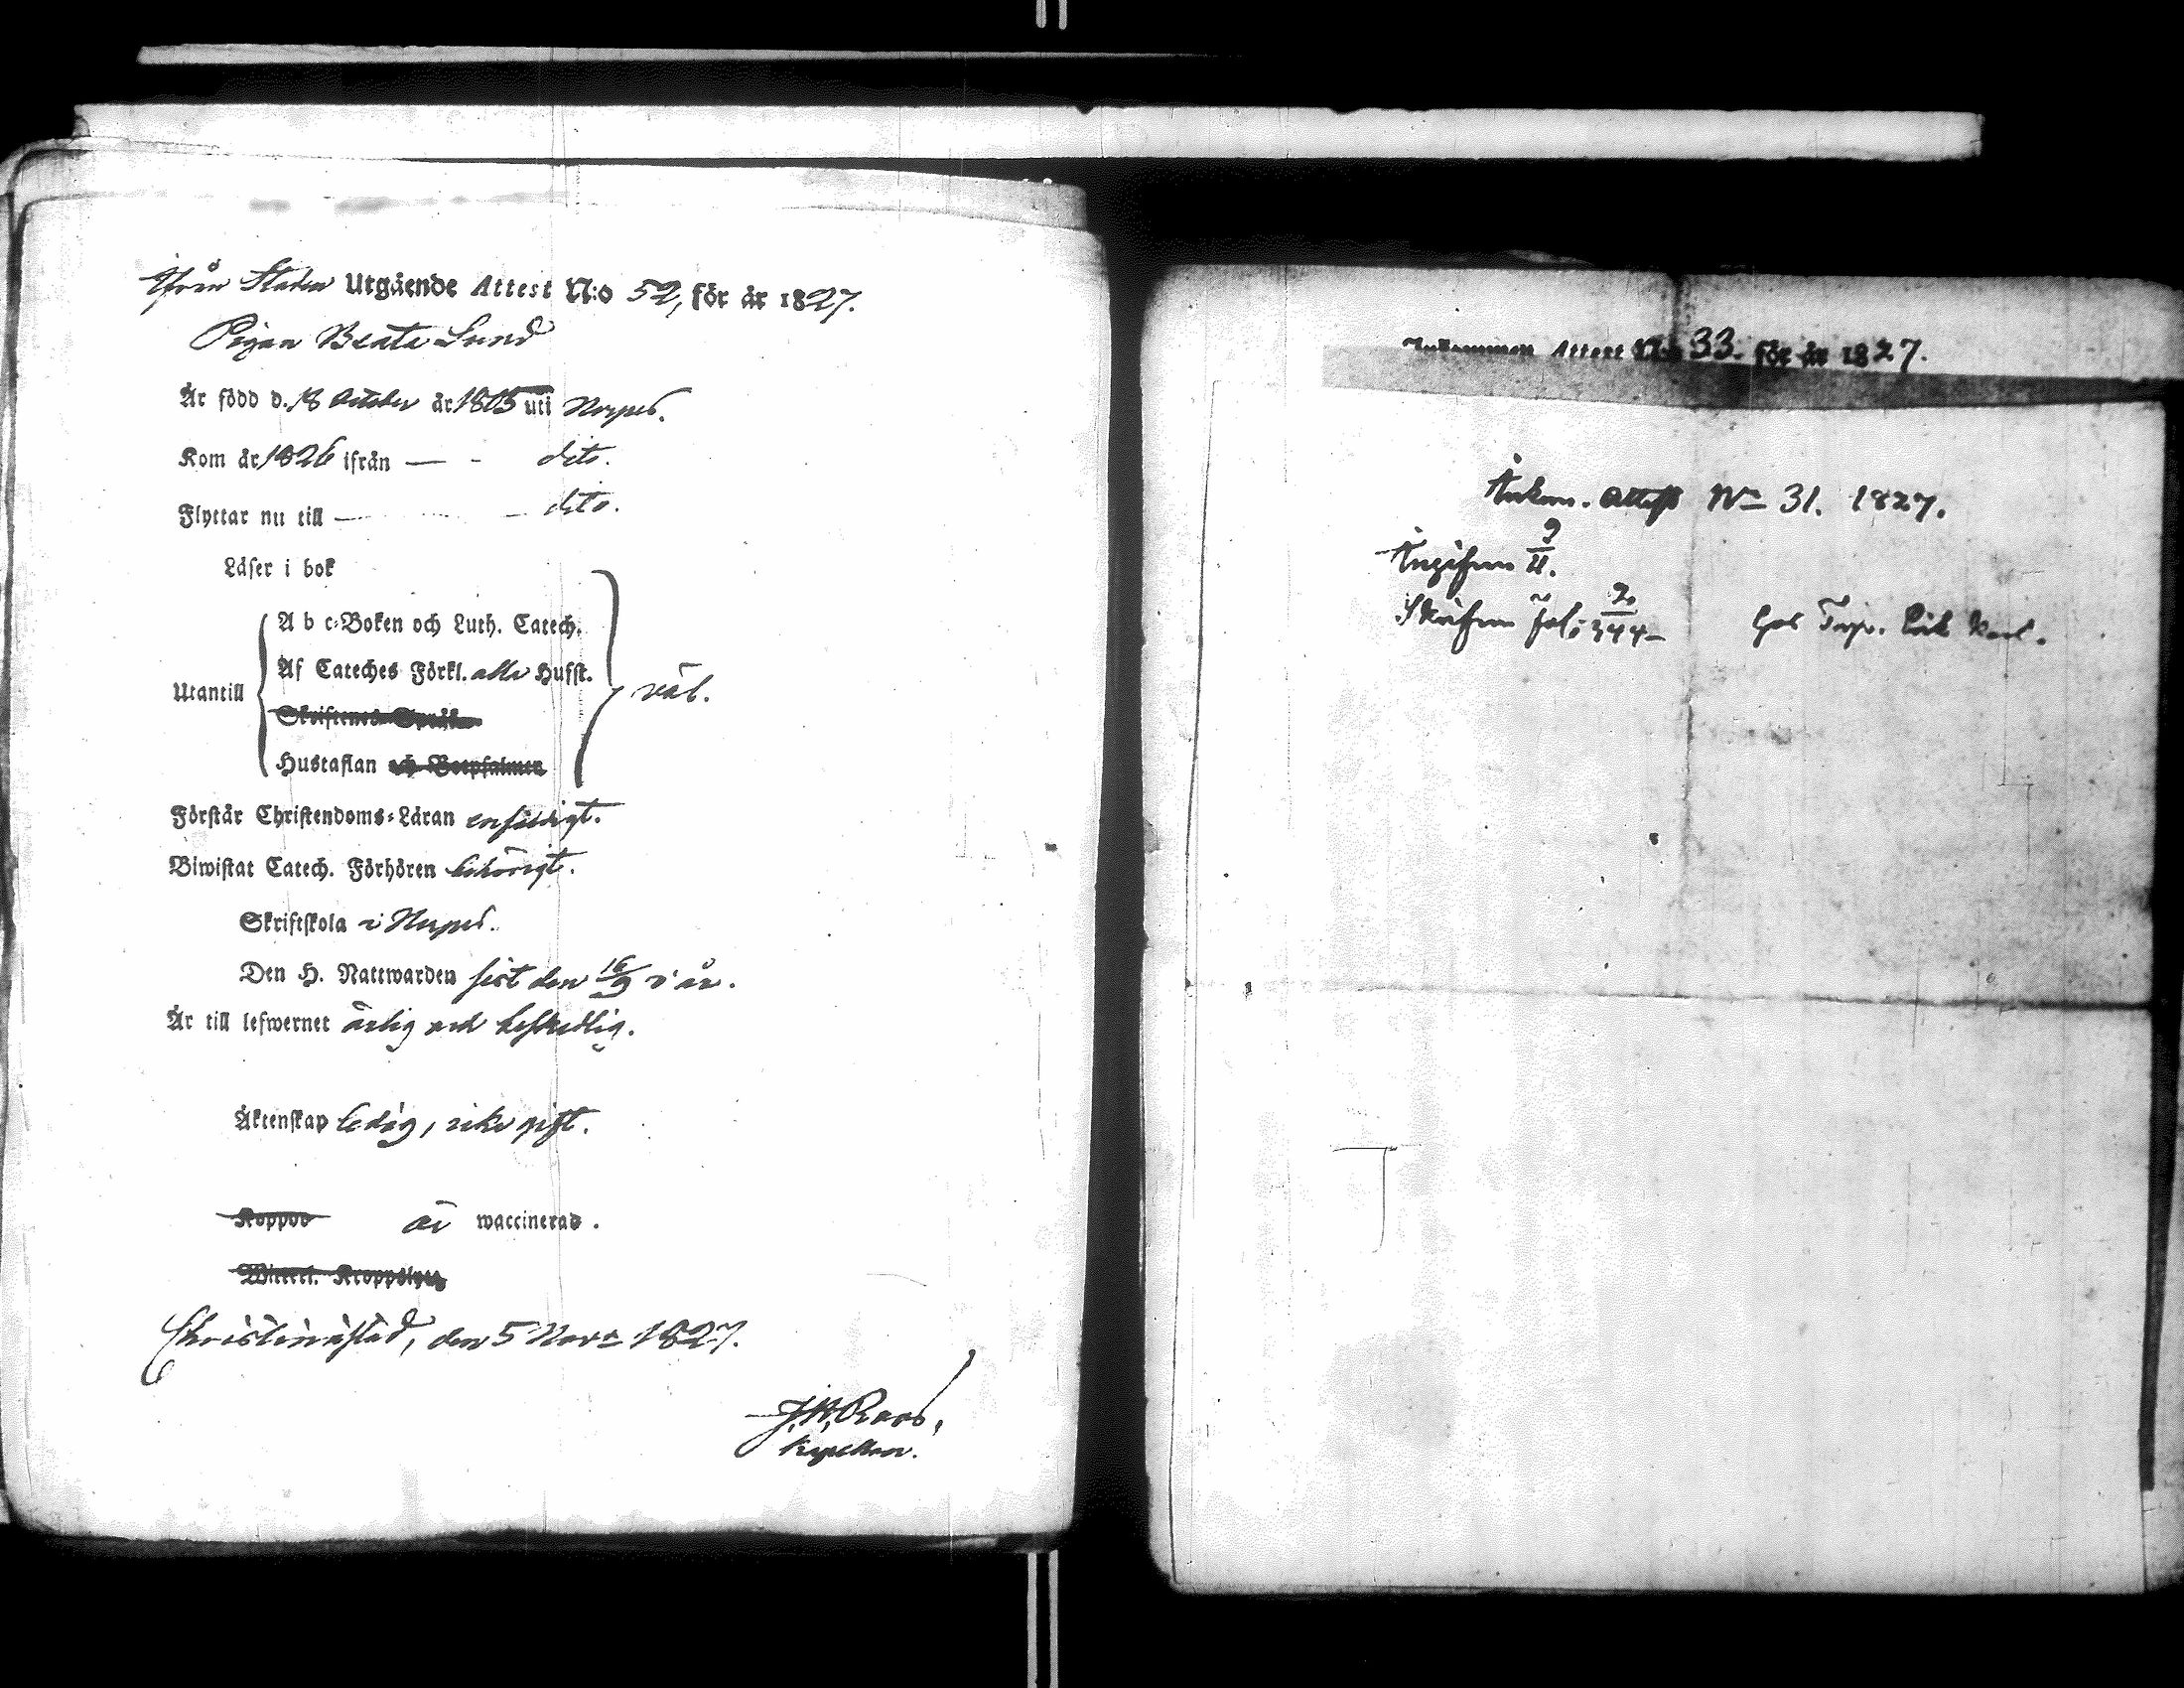 Ifrån Staden Utgående Attest N:o 52, för år 1827.
Pigan Beata Lund
Är född d. 18 October år 1805 uti Nerpes.
Kom år 1826 ifrån — - dito.
Flyttar nu till — — dito.
Läser i bok
A b c-Boken och Luth. Catech.
Af Cateches Förkl. alla Hufst.
Utantill väl.
Skriftenes Språk
Hustaflan och Botpsalmer
Förstår Christendoms-Läran enfaldigt.
Biwistat Catech. Förhören behörigt.
Skriftskola i Nerpes.
Den H. Nattwarden sist den 16/9 i år.
Är till lefwernet ärlig och beskedlig.
Äktenskap ledig, icke gift.
Koppor är waccinerad.
Witterl. Kroppslyte
Christinæstad, den 5 Nov. 1827.
Kapellan.
Inkommen Attest N:o 33. för år 1827.
Inkom. Attest No 31. 1827.
Angifven 9/11.
Skrifven fol: 344 hos Torp.